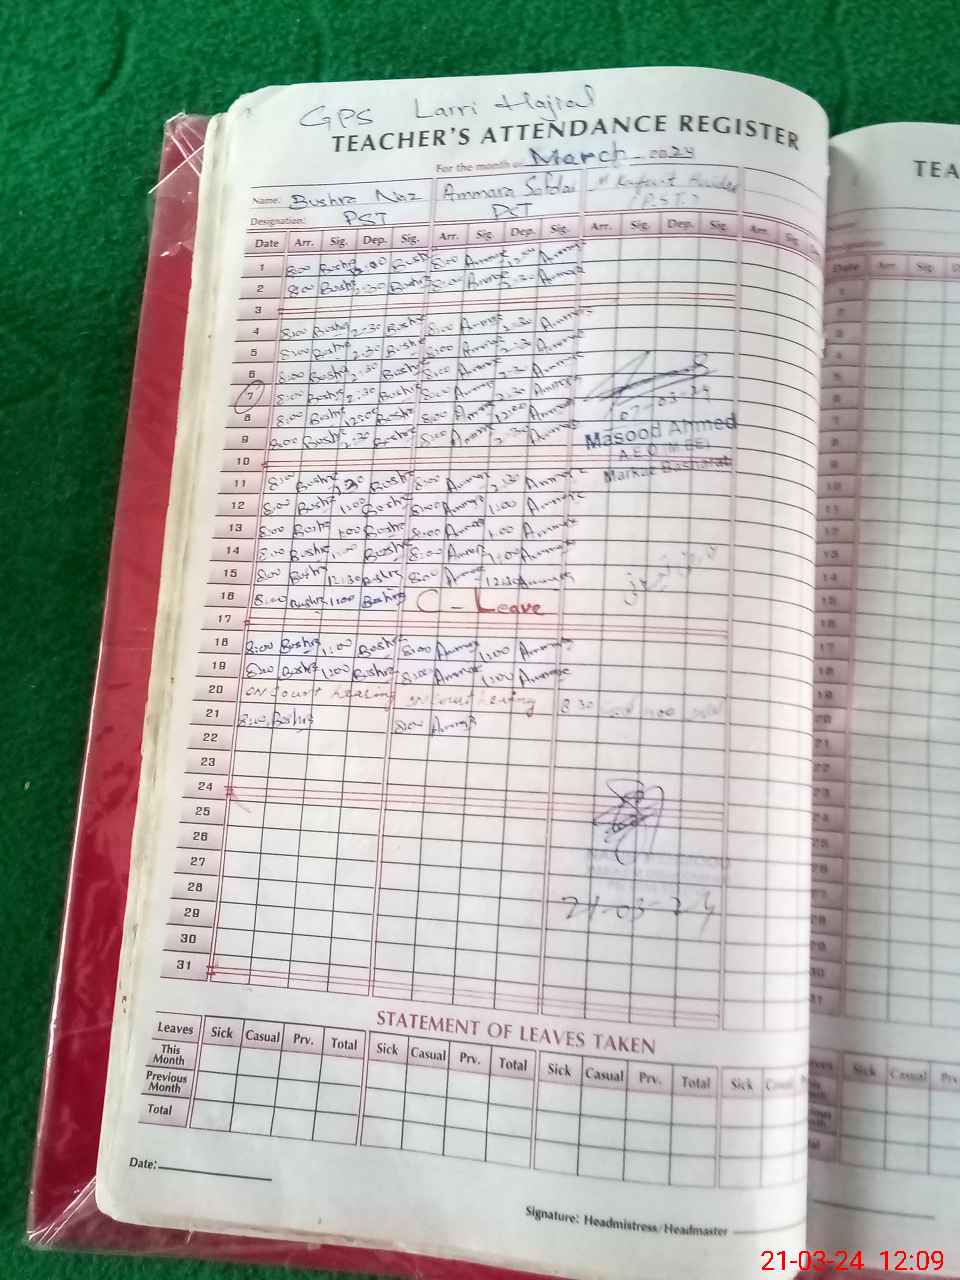 GPS Larri Hajial
TEACHER'S ATTENDANCE REGISTER
For the month of March 2024
Name: Bushra Naz Ammara Safdar
Designation: PST PST (P.S.T.)
Date Arr. Sig. Dep. Sig. Arr. Sig. Dep. Sig. Arr. Sig. Dep. Sig. Arr. Sig.
1 8:00 Bushra 12:00 Bushra 8:00 Ammara 12:00 Ammara
2 8:00 Bushra 2:30 Bushra 8:00 Ammara 2:30 Ammara
3
4 8:00 Bushra 2:30 Bushra 8:00 Ammara 2:30 Ammara
5 8:00 Bushra 2:30 Bushra 8:00 Ammara 2:30 Ammara
6 8:00 Bushra 2:30 Bushra 8:00 Ammara 2:30 Ammara
7 8:00 Bushra 2:30 Bushra 8:00 Ammara 2:30 Ammara
07-03-24
8 8:00 Bushra 12:00 Bushra 8:00 Ammara 12:00 Ammara
9 8:00 Bushra 2:30 Bushra 8:00 Ammara 2:30 Ammara
Masood Ahmed
A.E.O (M-EE)
Markaz Basharat
10
11 8:00 Bushra Bushra 8:00 Ammara 2:30 Ammara
12 8:00 Bushra 1:00 Bushra 8:00 Ammara 1:00 Ammara
13 8:00 Bushra 1:00 Bushra 8:00 Ammara 1:00 Ammara
14 8:00 Bushra 1:00 Bushra 8:00 Ammara 1:00 Ammara
15 8:00 Bushra 12:30 Bushra 8:00 Ammara 12:30 Ammara
16 8:00 Bushra 1:00 Bushra C - Leave
17
18 8:00 Bushra 1:00 Bushra 8:00 Ammara 1:00 Ammara
19 8:00 Bushra 1:00 Bushra 8:00 Ammara 1:00 Ammara
20 on Court hearing on Court hearing 8:30
21 8:00 Bushra 8:00 Ammara
22
23
24
25
26
27
28
29
21-03-24
30
31
STATEMENT OF LEAVES TAKEN
Leaves Sick Casual Prv. Total Sick Casual Prv. Total Sick Casual Prv. Total Sick
This Month
Previous Month
Total
Date:
Signature: Headmistress/Headmaster
TEA
Date Arr. Sig. Dep
Sick Casual Prv
21-03-24 12:09